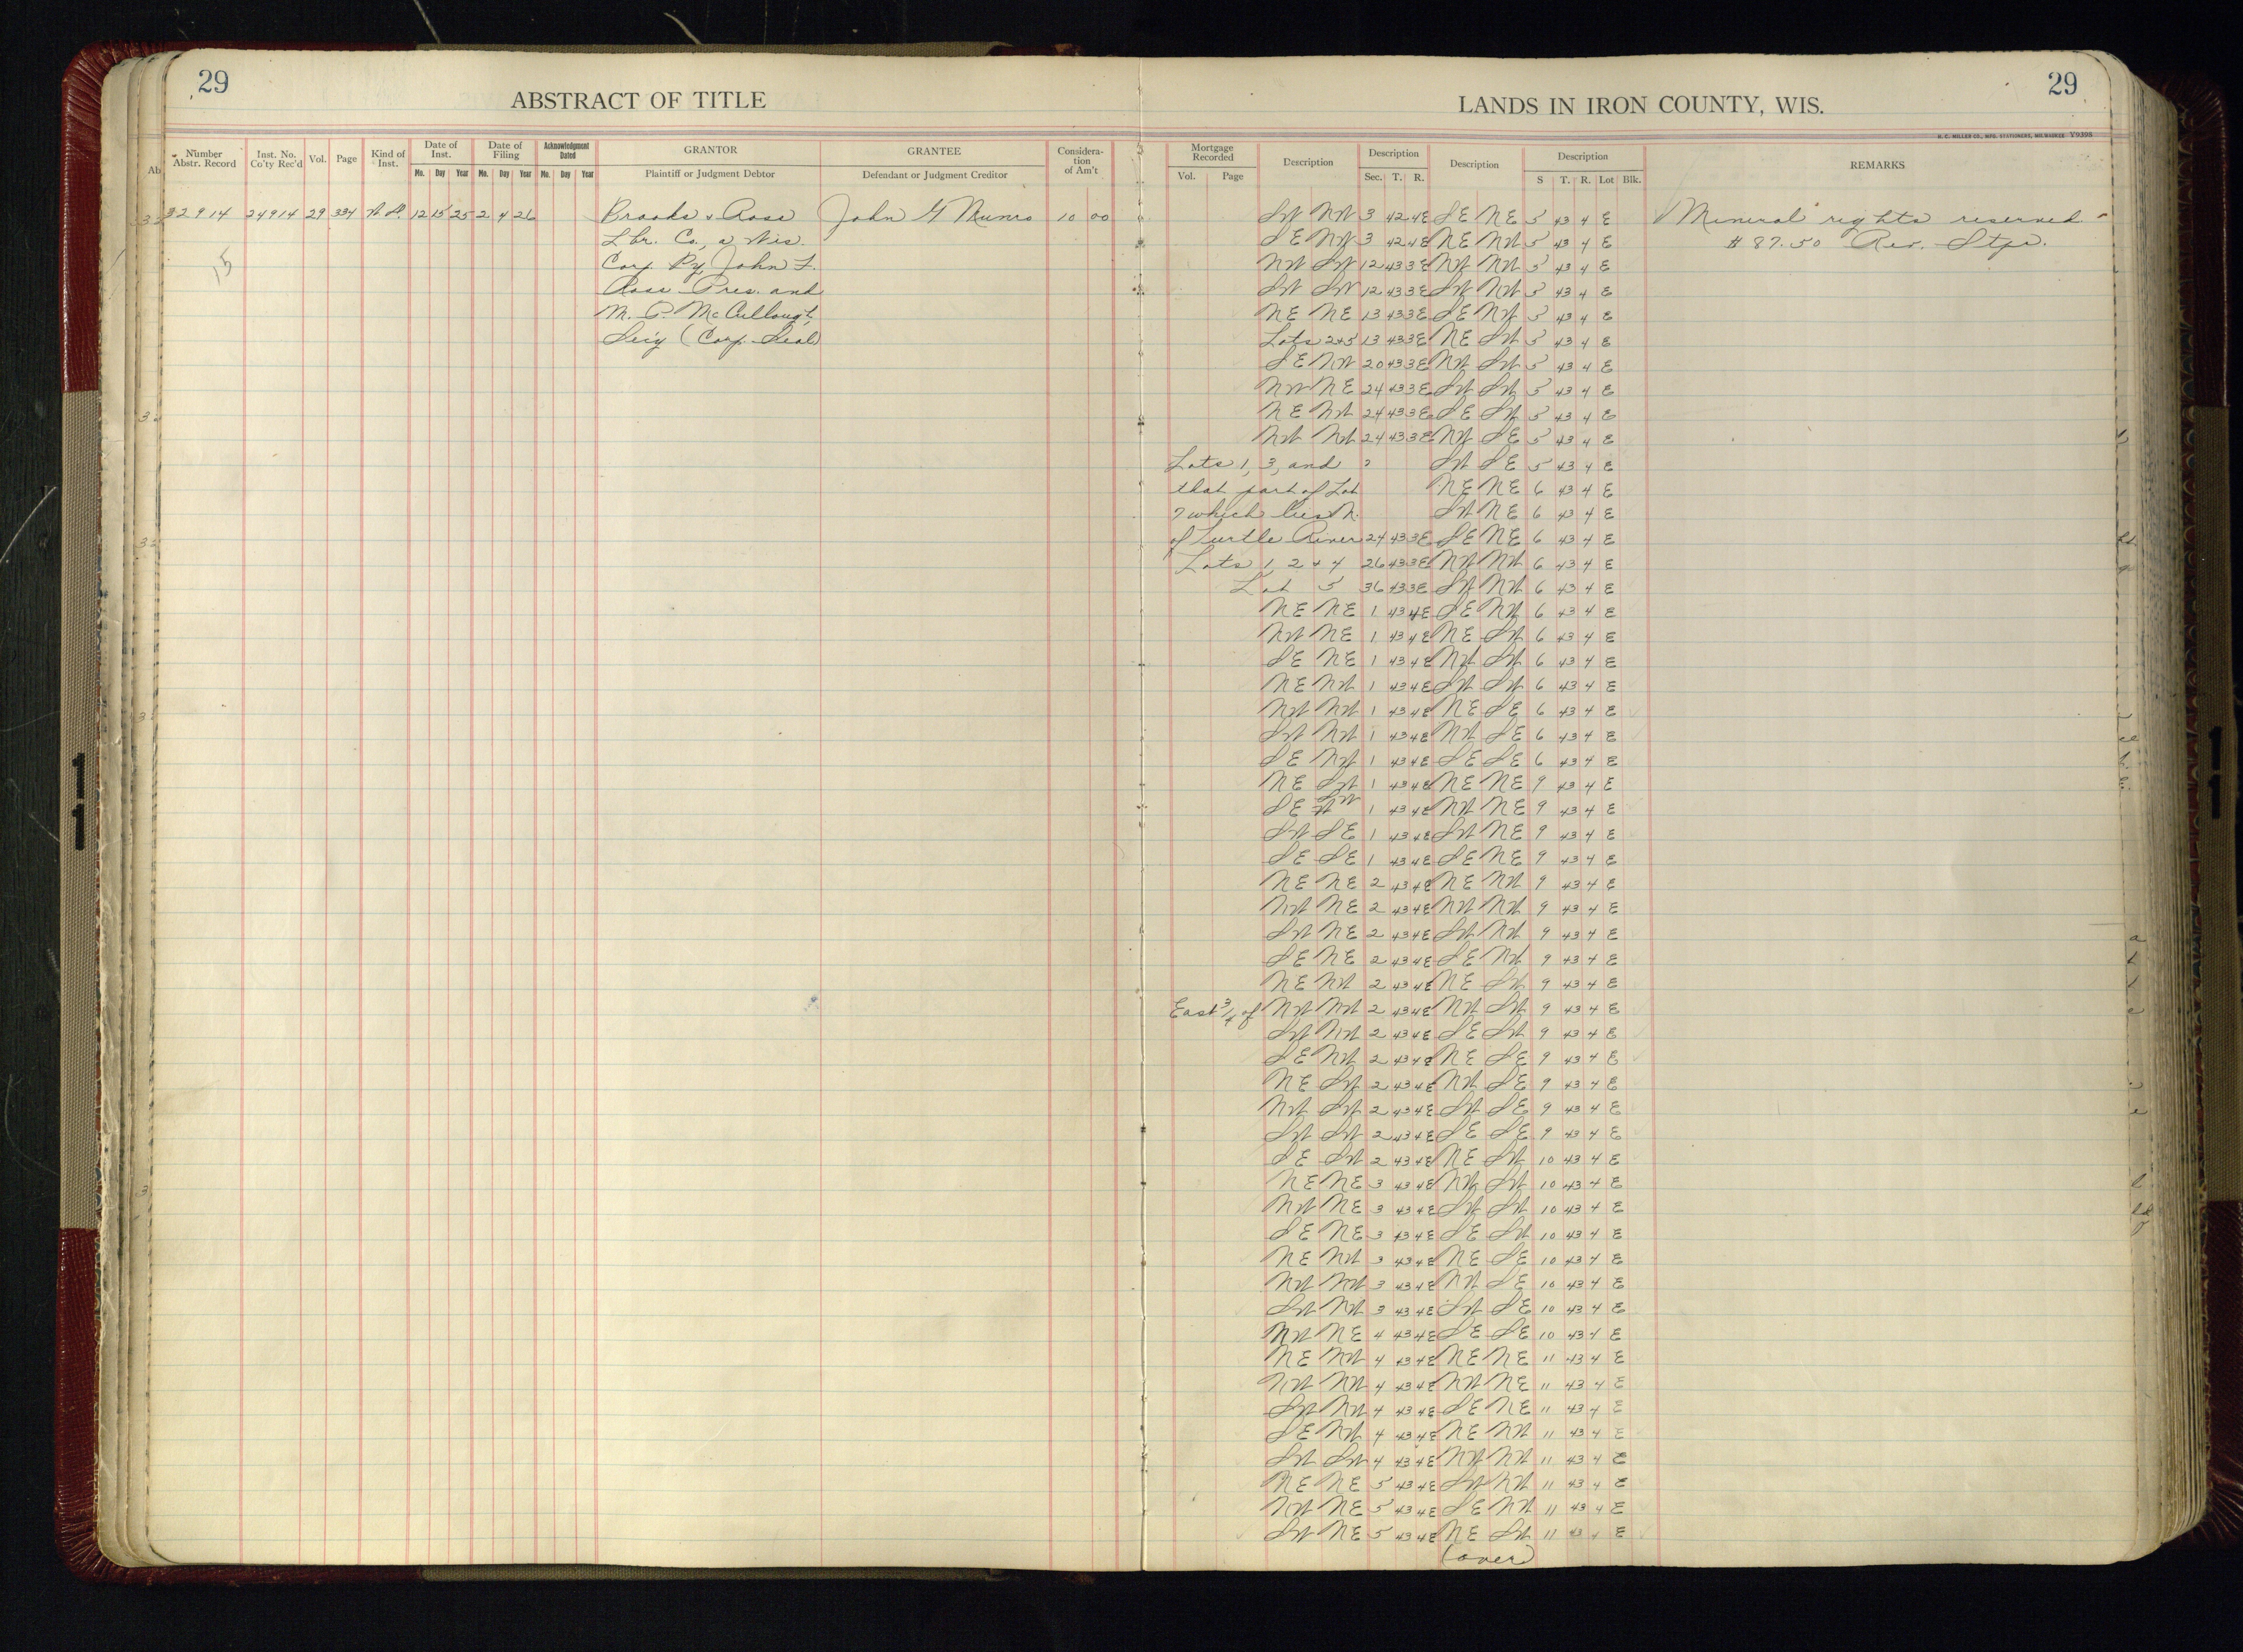 29
ABSTRACT OF TITLE
LANDS IN IRON COUNTY, WIS.
29
H. C. MILLER CO., MFG. STATIONERS, MILWAUKEE Y9398
Number Abstr. Record Inst. No. Co'ty Rec'd Vol. Page Kind of Inst. Date of Inst. Mo. Day Year Date of Filing Mo. Day Year Acknowledgment Dated Mo. Day Year GRANTOR Plaintiff or Judgment Debtor GRANTEE Defendant or Judgment Creditor Considera- tion of Am't
Mortgage Recorded Vol. Page Description Description Sec. T. R. Description Description S T. R. Lot Blk. REMARKS
32914 24914 29 334 W.D. 12 15 25 2 4 26 Brooks & Ross John G Munro 10 00
Lbr. Co., a Wis.
Corp. By John F.
Ross Pres. and
M. P. McCullough,
Sec'y (Corp. Seal)
15
SW NW 3 42 4E SE NE 5 43 4 E Mineral rights reserved.
SE NW 3 42 4E NE NW 5 43 4 E $87.50 Rev. Stps.
NW SW 12 43 3E NW NW 5 43 4 E
SW SW 12 43 3E SW NW 5 43 4 E
NE NE 13 43 3E SE NW 5 43 4 E
Lots 2+5 13 43 3E NE SW 5 43 4 E
SE NW 20 43 3E NW SW 5 43 4 E
NW NE 24 43 3E SW SW 5 43 4 E
NE NW 24 43 3E SE SW 5 43 4 E
NW NW 24 43 3E NW SE 5 43 4 E
Lots 1, 3, and SW SE 5 43 4 E
that part of Lot NE NE 6 43 4 E
7 which lies N. SW NE 6 43 4 E
of Turtle River 24 43 3E SE NE 6 43 4 E
Lots 1, 2 + 4 26 43 3E NW NW 6 43 4 E
Lot 5 36 43 3E SW NW 6 43 4 E
NE NE 1 43 4E SE NW 6 43 4 E
NW NE 1 43 4E NE SW 6 43 4 E
SE NE 1 43 4E NW SW 6 43 4 E
NE NW 1 43 4E SW SW 6 43 4 E
NW NW 1 43 4E NE SE 6 43 4 E
SW NW 1 43 4E NW SE 6 43 4 E
SE NW 1 43 4E SE SE 6 43 4 E
NE SW 1 43 4E NE NE 9 43 4 E
SE SW 1 43 4E NW NE 9 43 4 E
SW SE 1 43 4E SW NE 9 43 4 E
SE SE 1 43 4E SE NE 9 43 4 E
NE NE 2 43 4E NE NW 9 43 4 E
NW NE 2 43 4E NW NW 9 43 4 E
SW NE 2 43 4E SW NW 9 43 4 E
SE NE 2 43 4E SE NW 9 43 4 E
NE NW 2 43 4E NE SW 9 43 4 E
East 3/4 of NW NW 2 43 4E NW SW 9 43 4 E
SW NW 2 43 4E SE SW 9 43 4 E
SE NW 2 43 4E NE SE 9 43 4 E
NE SW 2 43 4E NW SE 9 43 4 E
NW SW 2 43 4E SW SE 9 43 4 E
SW SW 2 43 4E SE SE 9 43 4 E
SE SW 2 43 4E NE SW 10 43 4 E
NE NE 3 43 4E NW SW 10 43 4 E
NW NE 3 43 4E SW SW 10 43 4 E
SE NE 3 43 4E SE SW 10 43 4 E
NE NW 3 43 4E NE SE 10 43 4 E
NW NW 3 43 4E NW SE 10 43 4 E
SW NW 3 43 4E SW SE 10 43 4 E
NW NE 4 43 4E SE SE 10 43 4 E
NE NW 4 43 4E NE NE 11 43 4 E
NW NW 4 43 4E NW NE 11 43 4 E
SW NW 4 43 4E SE NE 11 43 4 E
SE NW 4 43 4E NE NW 11 43 4 E
SW SW 4 43 4E NW NW 11 43 4 E
NE NE 5 43 4E SW NW 11 43 4 E
NW NE 5 43 4E SE NW 11 43 4 E
SW NE 5 43 4E NE SW 11 43 4 E
(over)